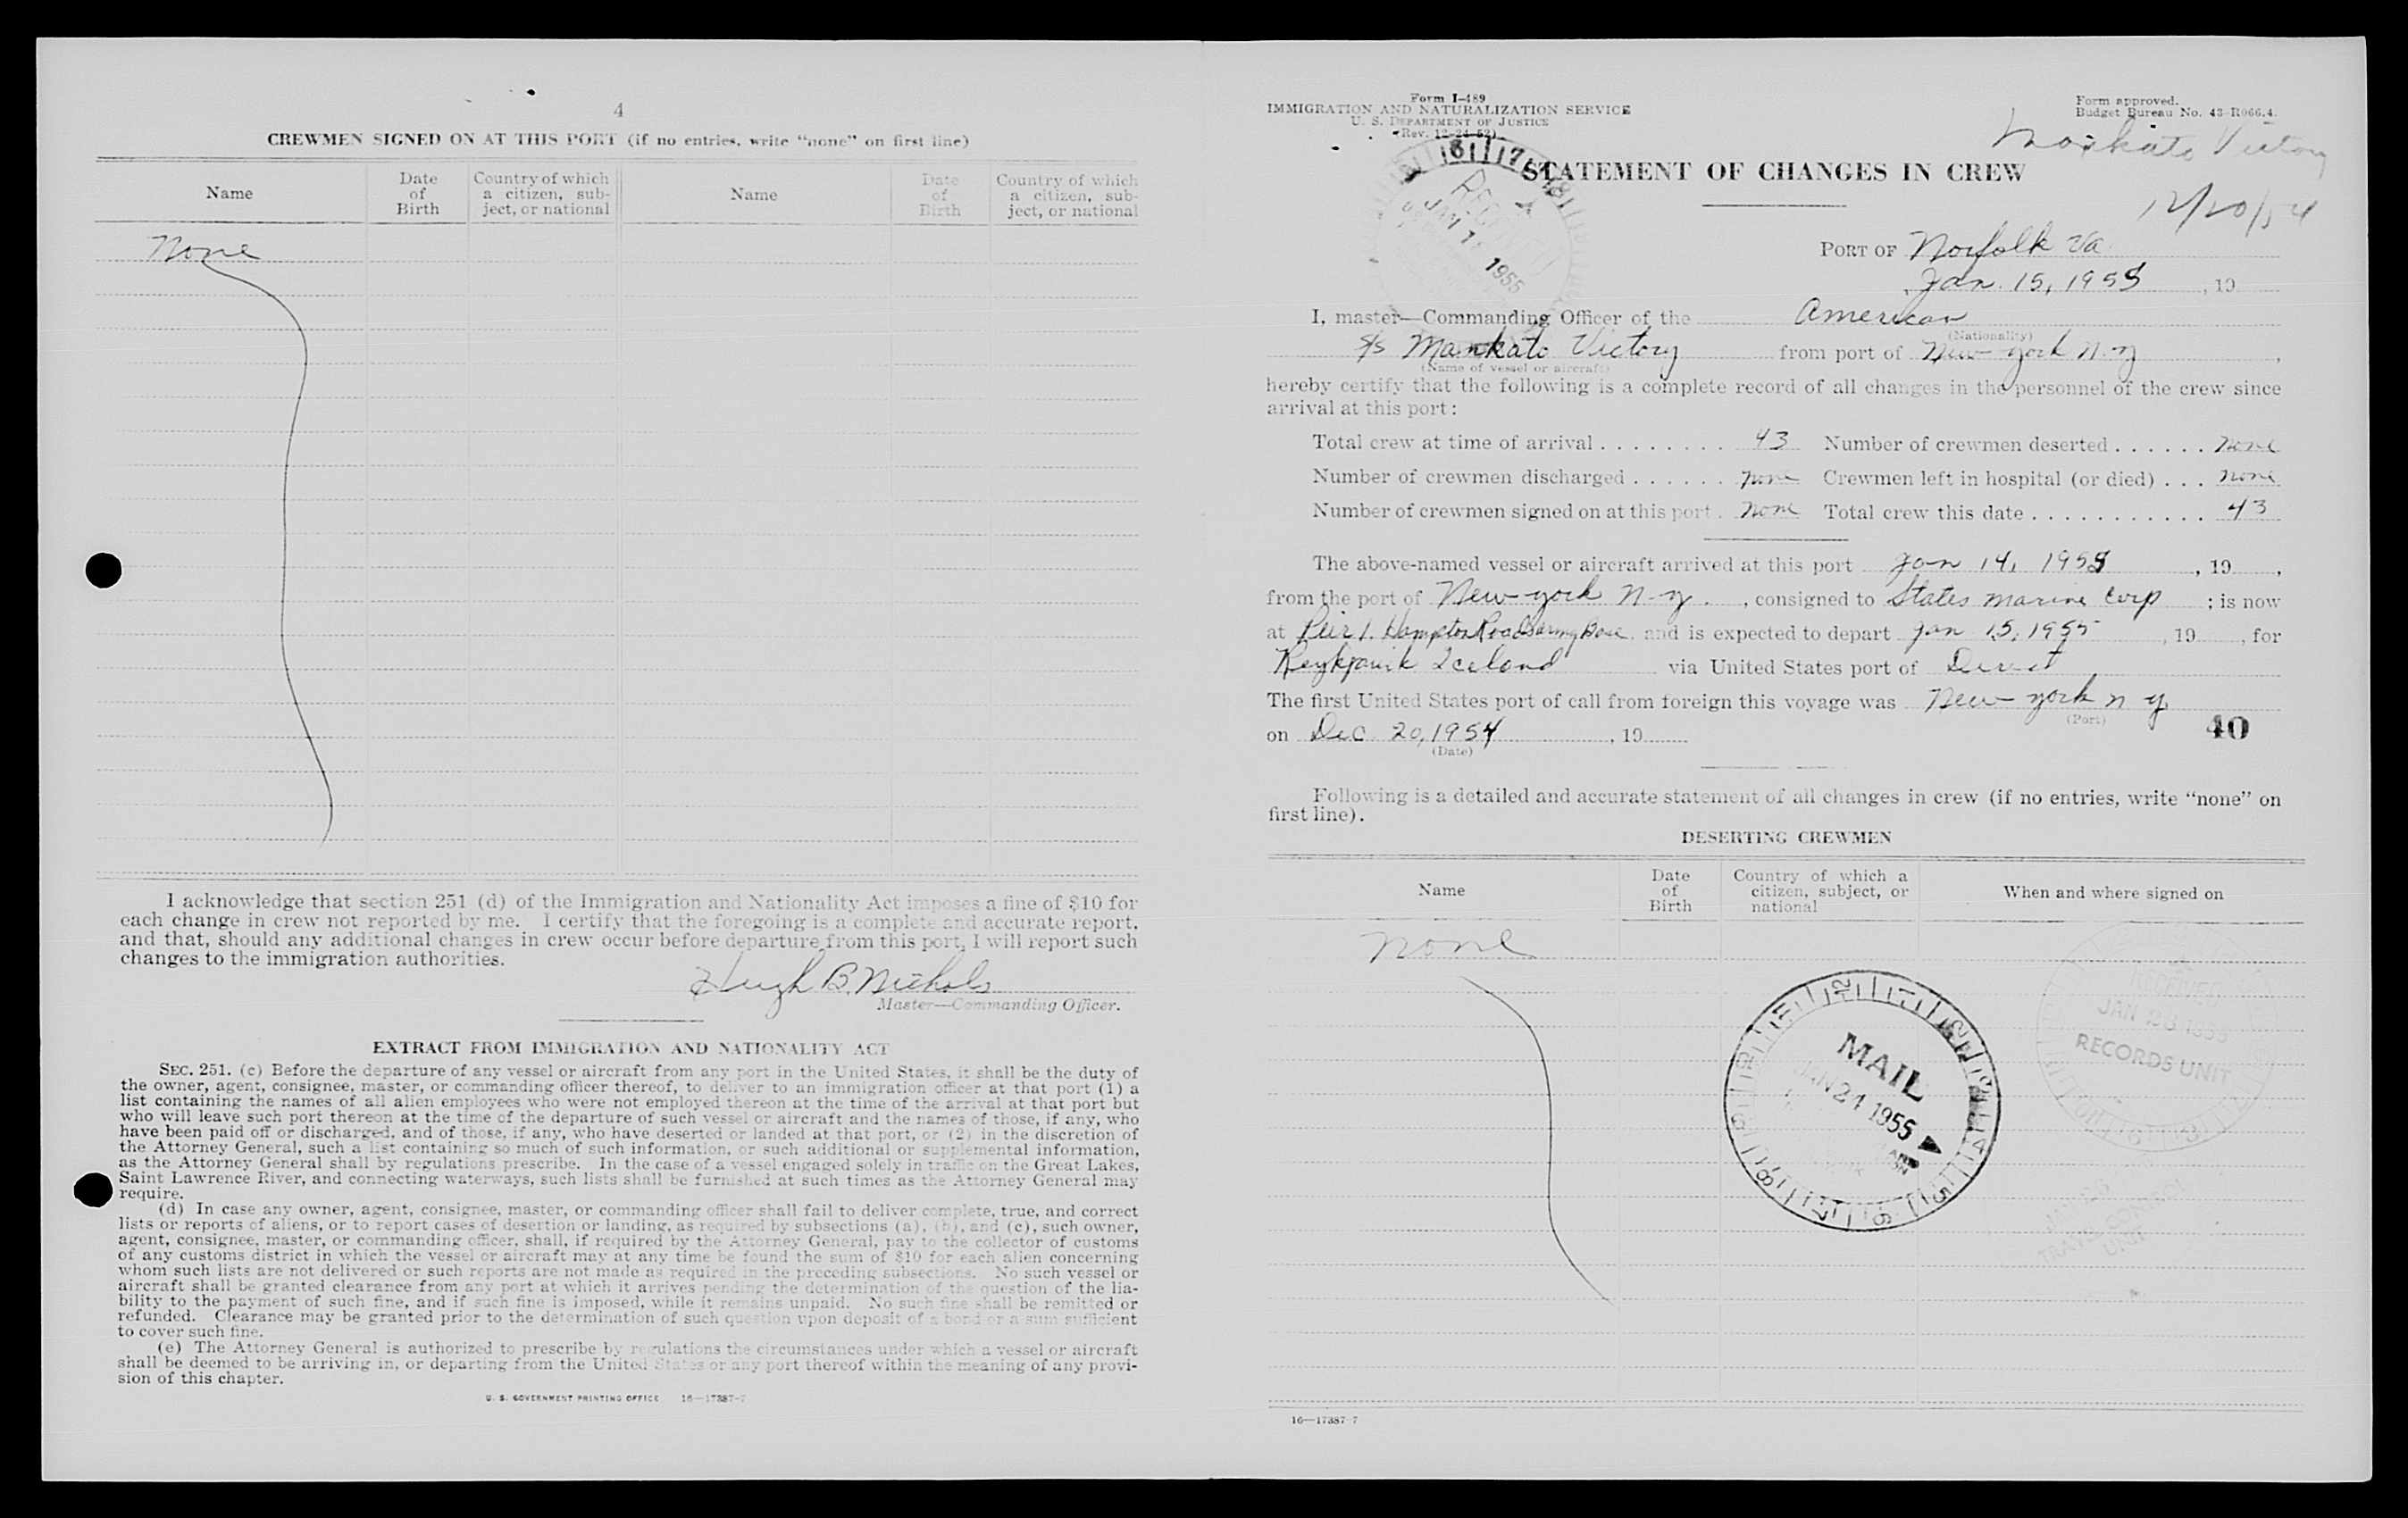 4
CREWMEN SIGNED ON AT THIS PORT (if no entries, write "none" on first line)
Name
Date of Birth
Country of which a citizen, subject, or national
Name
Date of Birth
Country of which a citizen, subject, or national
None
I acknowledge that section 251 (d) of the Immigration and Nationality Act imposes a fine of $10 for
each change in crew not reported by me. I certify that the foregoing is a complete and accurate report,
and that, should any additional changes in crew occur before departure from this port, I will report such
changes to the immigration authorities.
Hugh B. Nichols
Master—Commanding Officer.
EXTRACT FROM IMMIGRATION AND NATIONALITY ACT
SEC. 251. (c) Before the departure of any vessel or aircraft from any port in the United States, it shall be the duty of
the owner, agent, consignee, master, or commanding officer thereof, to deliver to an immigration officer at that port (1) a
list containing the names of all alien employees who were not employed thereon at the time of the arrival at that port but
who will leave such port thereon at the time of the departure of such vessel or aircraft and the names of those, if any, who
have been paid off or discharged, and of those, if any, who have deserted or landed at that port, or (2) in the discretion of
the Attorney General, such a list containing so much of such information, or such additional or supplemental information,
as the Attorney General shall by regulations prescribe. In the case of a vessel engaged solely in traffic on the Great Lakes,
Saint Lawrence River, and connecting waterways, such lists shall be furnished at such times as the Attorney General may
require.
(d) In case any owner, agent, consignee, master, or commanding officer shall fail to deliver complete, true, and correct
lists or reports of aliens, or to report cases of desertion or landing, as required by subsections (a), (b), and (c), such owner,
agent, consignee, master, or commanding officer, shall, if required by the Attorney General, pay to the collector of customs
of any customs district in which the vessel or aircraft may at any time be found the sum of $10 for each alien concerning
whom such lists are not delivered or such reports are not made as required in the preceding subsections. No such vessel or
aircraft shall be granted clearance from any port at which it arrives pending the determination of the question of the lia-
bility to the payment of such fine, and if such fine is imposed, while it remains unpaid. No such fine shall be remitted or
refunded. Clearance may be granted prior to the determination of such question upon deposit of a bond or a sum sufficient
to cover such fine.
(e) The Attorney General is authorized to prescribe by regulations the circumstances under which a vessel or aircraft
shall be deemed to be arriving in, or departing from the United States or any port thereof within the meaning of any provi-
sion of this chapter.
U. S. GOVERNMENT PRINTING OFFICE 16—17387-7
Form I-489
IMMIGRATION AND NATURALIZATION SERVICE
U. S. DEPARTMENT OF JUSTICE
(Rev. 12-24-52)
Form approved.
Budget Bureau No. 43-R066.4.
Mankato Victory
12/20/54
STATEMENT OF CHANGES IN CREW
RECEIVED
JAN 1
1955
PORT OF Norfolk Va
Jan. 15, 1955, 19
I, master—Commanding Officer of the American
(Nationality)
S/S Mankato Victory from port of New York N.Y,
(Name of vessel or aircraft)
hereby certify that the following is a complete record of all changes in the personnel of the crew since
arrival at this port:
Total crew at time of arrival 43 Number of crewmen deserted none
Number of crewmen discharged none Crewmen left in hospital (or died) none
Number of crewmen signed on at this port None Total crew this date 43
The above-named vessel or aircraft arrived at this port Jan 14, 1955, 19,
from the port of New York N.Y., consigned to States Marine Corp; is now
at Pier 1. Hampton Roads Army Base and is expected to depart Jan 15, 1955, 19, for
Reykjavik Iceland via United States port of Direct
The first United States port of call from foreign this voyage was New York N Y
(Port)
on Dec. 20, 1954, 19
(Date)
40
Following is a detailed and accurate statement of all changes in crew (if no entries, write "none" on
first line).
DESERTING CREWMEN
Name
Date of Birth
Country of which a citizen, subject, or national
When and where signed on
none
MAIL
JAN 24 1955
RECEIVED
JAN 28 1955
RECORDS UNIT
16—17387-7